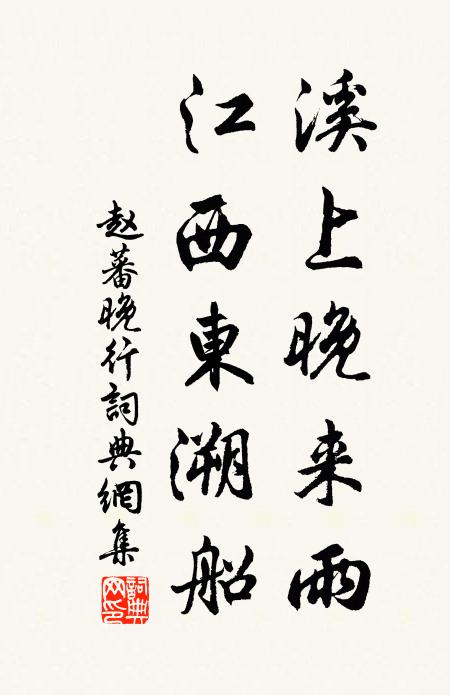 溪上晚来雨
江西東溯船
赵蕃晚行詞典網集
詞典网印